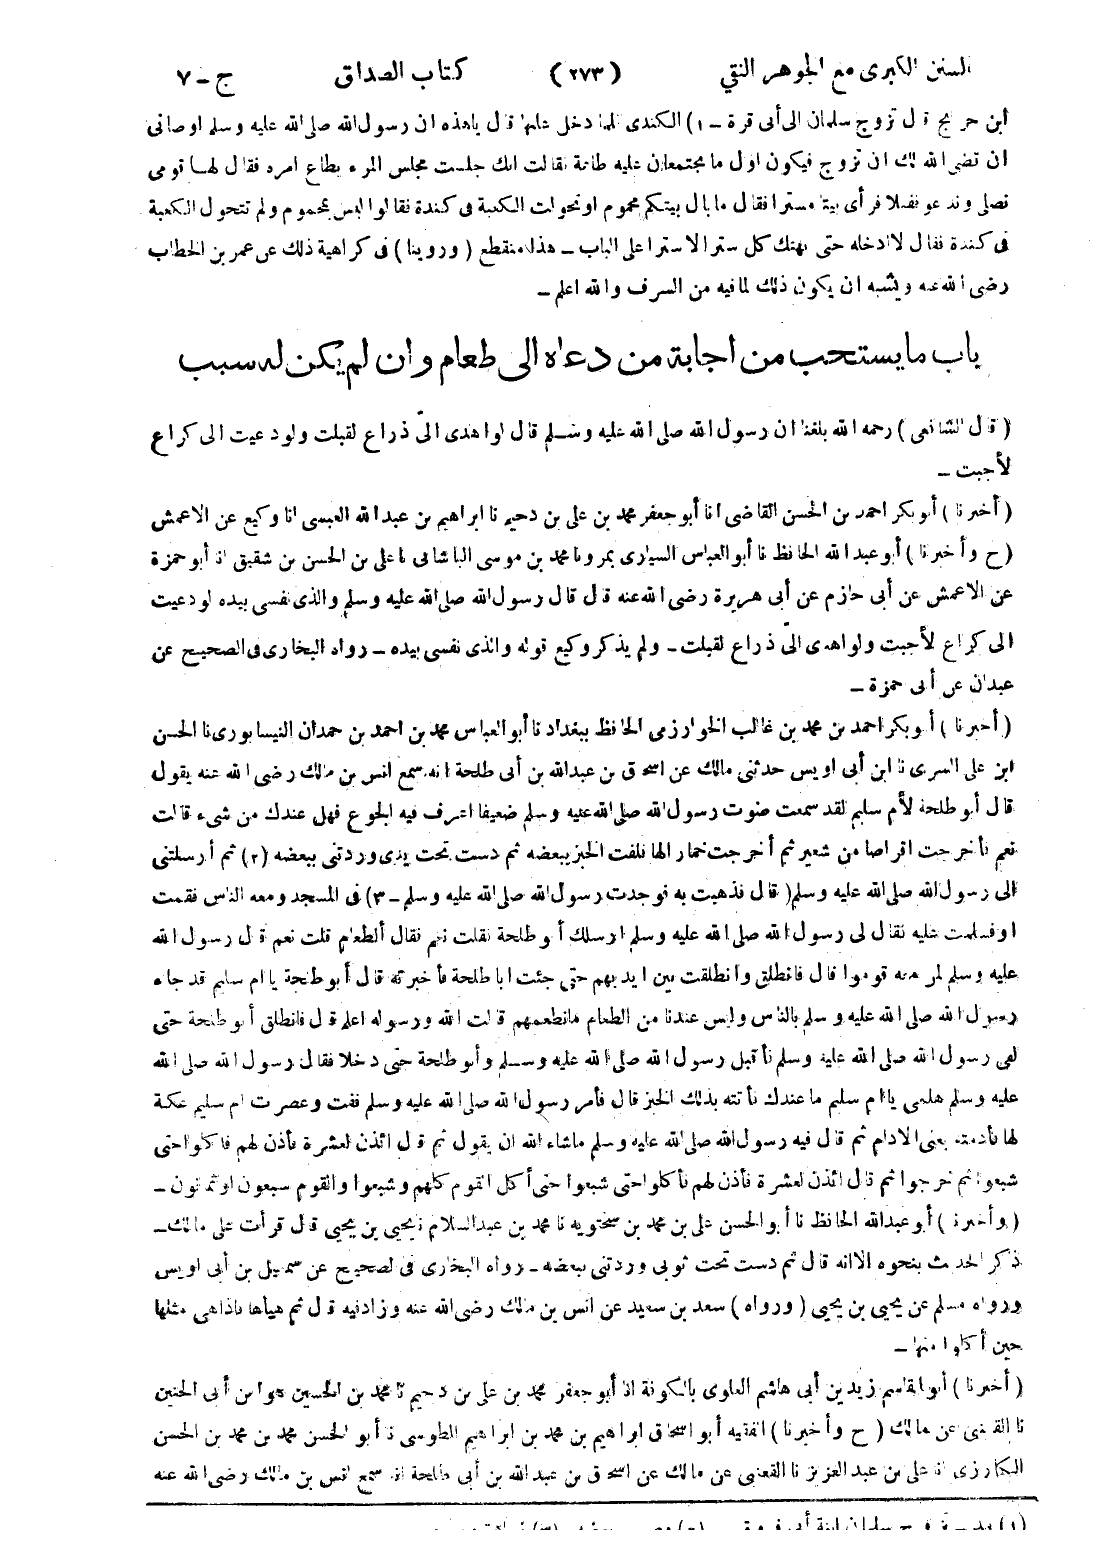 السنن الكبرى مع الجوهر النقي (٢٧٣) كتاب الصداق ج - ٧
ابن جريج قال تزوج سلمان الى أبى قرة - ١) الكندى فلما دخل عليها قال ياهذه ان رسول الله صلى الله عليه وسلم اوصانى
ان قضى الله لك ان تزوج فيكون اول ما يجتمعان عليه طاعة فقالت انك جلست مجلس المرء يطاع امره فقال لهـا قومى
نصلى وندعو ففعلا فرأى بيتا مسترا فقال ما بال بيتكم محموم او تحولت الكعبة فى كندة فقالوا ليس بمحموم ولم تتحول الكعبة
فى كندة فقال لا ادخله حتى يهتك كل ستر الا سترا على الباب - هذا منقطع ( وروينا ) فى كراهية ذلك عن عمر بن الخطاب
رضى الله عنه ويشبه ان يكون ذلك لما فيه من السرف والله اعلم -
باب ما يستحب من اجابة من دعاه الى طعام وان لم يكن له سبب
( قال الشافعى ) رحمه الله بلغنا ان رسول الله صلى الله عليه وسـلم قال لو اهدى الىّ ذراع لقبلت ولو دعيت الى كراع
لأجبت -
( أخبرنا ) أبو بكر احمد بن الحسن القاضى انا أبو جعفر محمد بن على بن دحيم نا ابراهيم بن عبد الله العبسى انا وكيع عن الاعمش
( ح وأخبرنا ) أبو عبد الله الحافظ نا أبو العباس السيارى بمرو نا محمد بن موسى الباشانى نا على بن الحسن بن شقيق انا أبو حمزة
عن الاعمش عن أبى حازم عن أبى هريرة رضى الله عنه قال قال رسول الله صلى الله عليه وسلم والذى نفسى بيده لو دعيت
الى كراع لأجبت ولو اهدى الىّ ذراع لقبلت - ولم يذكر وكيع قوله والذى نفسى بيده - رواه البخارى فى الصحيح عن
عبدان عن أبى حمزة -
( أخبرنا ) أبو بكر احمد بن محمد بن غالب الخوارزمى الحافظ ببغداد نا أبو العباس محمد بن احمد بن حمدان النيسابورى نا الحسن
ابن على السرى نا ابن أبى اويس حدثنى مالك عن اسحاق بن عبد الله بن أبى طلحة انه سمع انس بن مالك رضى الله عنه يقول
قال أبو طلحة لأم سليم لقد سمعت صوت رسول الله صلى الله عليه وسلم ضعيفا اعرف فيه الجوع فهل عندك من شىء قالت
نعم فأخرجت اقراصا من شعير ثم أخرجت خمارا لها فلفت الخبز ببعضه ثم دست تحت يدى وردتنى ببعضه (٢) ثم أرسلتنى
الى رسول الله صلى الله عليه وسلم( قال فذهبت به فوجدت رسول الله صلى الله عليه وسلم -٣) فى المسجد ومعه الناس فقمت
او فسلمت عليه فقال لى رسول الله صلى الله عليه وسلم ارسلك أبو طلحة فقلت نعم فقال ألطعام قلت نعم قال رسول الله
عليه وسلم لمن معه قوموا قال فانطلق وانطلقت بين ايديهم حتى جئت ابا طلحة فأخبرته قال أبو طلحة يا ام سليم قد جاء
رسول الله صلى الله عليه وسلم بالناس وليس عندنا من الطعام ما نطعمهم قالت الله ورسوله اعلم قال فانطلق أبو طلحة حتى
لقى رسول الله صلى الله عليه وسلم فأقبل رسول الله صلى الله عليه وسـلم وأبو طلحة حتى دخلا فقال رسول الله صلى الله
عليه وسلم هلمى يا ام سليم ما عندك فأتته بذلك الخبز قال فأمر رسول الله صلى الله عليه وسلم ففت وعصرت ام سليم عكة
لها فأدمته يعنى الادام ثم قال فيه رسول الله صلى الله عليه وسلم ما شاء الله ان يقول ثم قال ائذن لعشرة فأذن لهم فاكلوا حتى
شبعوا ثم خرجوا ثم قال ائذن لعشرة فأذن لهم فأكلوا حتى شبعوا حتى أكل القوم كلهم وشبعوا والقوم سبعون او ثمانون -
( وأخبرنا ) أبو عبد الله الحافظ نا أبو الحسن على بن محمد بن سختويه نا محمد بن عبد السلام نا يحيى بن يحيى قال قرأت على مالك -
ذكر الحديث بنحوه الا انه قال ثم دست تحت ثوبى وردتنى ببعضه - رواه البخارى فى الصحيح عن اسمعيل بن أبى اويس
ورواه مسلم عن يحيى بن يحيى ( ورواه ) سعد بن سعيد عن انس بن مالك رضى الله عنه وزاد فيه قال ثم هيأها فاذا هى مثلها
حين أكلوا منها -
( أخبرنا ) أبو القاسم زيد بن أبى هاشم العلوى بالكوفة انا أبو جعفر محمد بن على بن دحيم نا محمد بن الحسين هو ابن أبى الحنين
نا القعنبى عن مالك ( ح وأخبرنا ) الفقيه أبو اسحاق ابراهيم بن محمد بن ابراهيم الطوسى نا أبو الحسن محمد بن محمد بن الحسن
الكارزى نا على بن عبد العزيز نا القعنبى عن مالك عن اسحاق بن عبد الله بن أبى طلحة انه سمع انس بن مالك رضى الله عنه